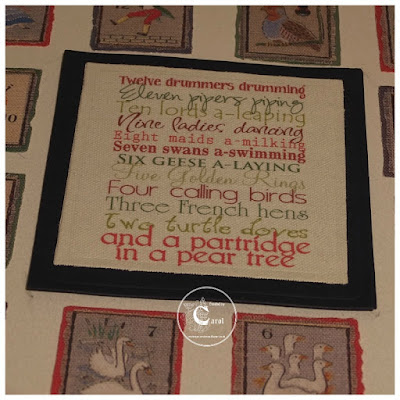 Twelve drummers drumming
Eleven pipers piping
Ten lords a-leaping
Nine ladies dancing
Eight maids a-milking
Seven swans a-swimming
SIX GEESE A-LAYING
Five Golden Rings
Four calling birds
Three French hens
Two turtle doves
and a partridge
in a pear tree
Carat
7
6